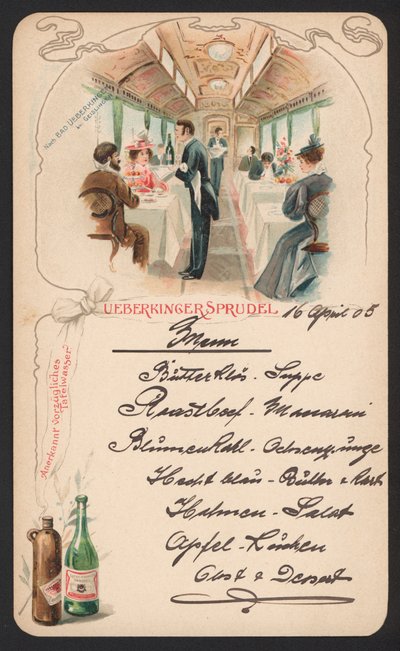 Nach BAD UEBERKINGEN
b/ GEISLINGEN
UEBERKINGER SPRUDEL
16 April 05
Menu
Anerkannt vorzügliches
Tafelwasser
Butterklös - Suppe
Roastbeef - Maccaroni
Blumenkohl - Ochsenzunge
Hecht blau - Butter & Kart
Hahnen - Salat
Apfel - Kuchen
Obst & Dessert